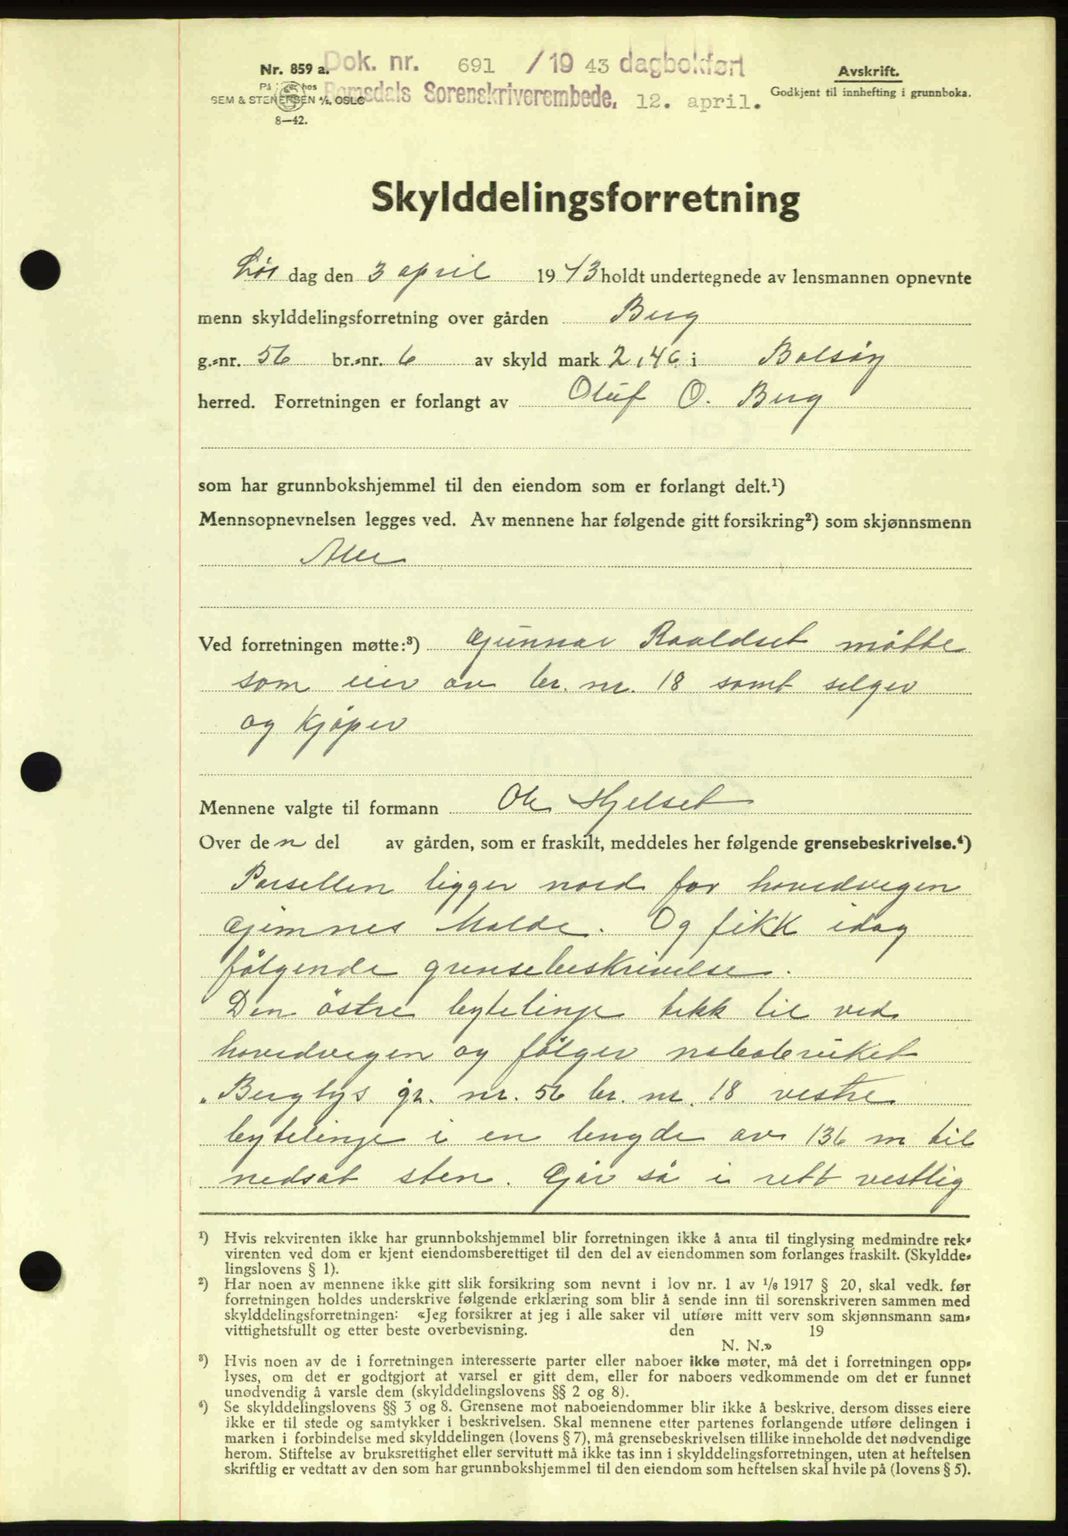 Nr. 859 a. Dok. nr. 691 /1943 dagbokført
Avskrift.
På hos
SEM & STENERSEN A/S, OSLO
Romsdals Sorenskriverembede, 12. april.
Godkjent til innhefting i grunnboka.
8—42.
Skylddelingsforretning
Lør dag den 3 april 1943 holdt undertegnede av lensmannen opnevnte
menn skylddelingsforretning over gården Berg
g.-nr. 56 br.-nr. 6 av skyld mark 2,46 i Bolsøy
herred. Forretningen er forlangt av Oluf O. Berg
som har grunnbokshjemmel til den eiendom som er forlangt delt.¹)
Mennsopnevnelsen legges ved. Av mennene har følgende gitt forsikring²) som skjønnsmenn
Alle
Ved forretningen møtte:³) Gunnar Raaldset møtte
som eier av br. nr. 18 samt selger
og kjøper
Mennene valgte til formann Ole Hjelset
Over den del av gården, som er fraskilt, meddeles her følgende grensebeskrivelse.⁴)
Parsellen ligger nord for hovedvegen
Gjemnes Molde. Og fikk idag
følgende grensebeskrivelse.
Den østre bytelinje tekk til ved
hovedvegen og følger nabobruket
"Berglys gr. nr. 56 br. nr. 18 vestre
bytelinje i en lengde av 136 m til
nedsat sten. Går så i rett vestlig
¹) Hvis rekvirenten ikke har grunnbokshjemmel blir forretningen ikke å anta til tinglysing medmindre rek-
virenten ved dom er kjent eiendomsberettiget til den del av eiendommen som forlanges fraskilt. (Skyldde-
lingslovens § 1).
²) Har noen av mennene ikke gitt slik forsikring som nevnt i lov nr. 1 av 1/6 1917 § 20, skal vedk. før
forretningen holdes underskrive følgende erklæring som blir å sende inn til sorenskriveren sammen med
skylddelingsforretningen: «Jeg forsikrer at jeg i alle saker vil utføre mitt verv som skjønnsmann sam-
vittighetsfullt og etter beste overbevisning. den 19
N. N.»
³) Hvis noen av de i forretningen interesserte parter eller naboer ikke møter, må det i forretningen opp-
lyses, om det er godtgjort at varsel er gitt dem, eller for naboers vedkommende om det er funnet
unødvendig å varsle dem (skylddelingslovens §§ 2 og 8).
⁴) Se skylddelingslovens §§ 3 og 8. Grensene mot naboeiendommer blir ikke å beskrive, dersom disses eiere
ikke er til stede og samtykker i beskrivelsen. Skal mennene etter partenes forlangende utføre delingen i
marken i forbindelse med skylddelingen (lovens § 7), må grensebeskrivelsen tillike inneholde det nødvendige
herom. Stiftelse av bruksrettighet eller servitutt må ikke tas inn i skylddelingsforretningen, uten at heftelsen
skriftlig er vedtatt av den som har grunnbokshjemmel til den eiendom som heftelsen skal hvile på (lovens § 5).